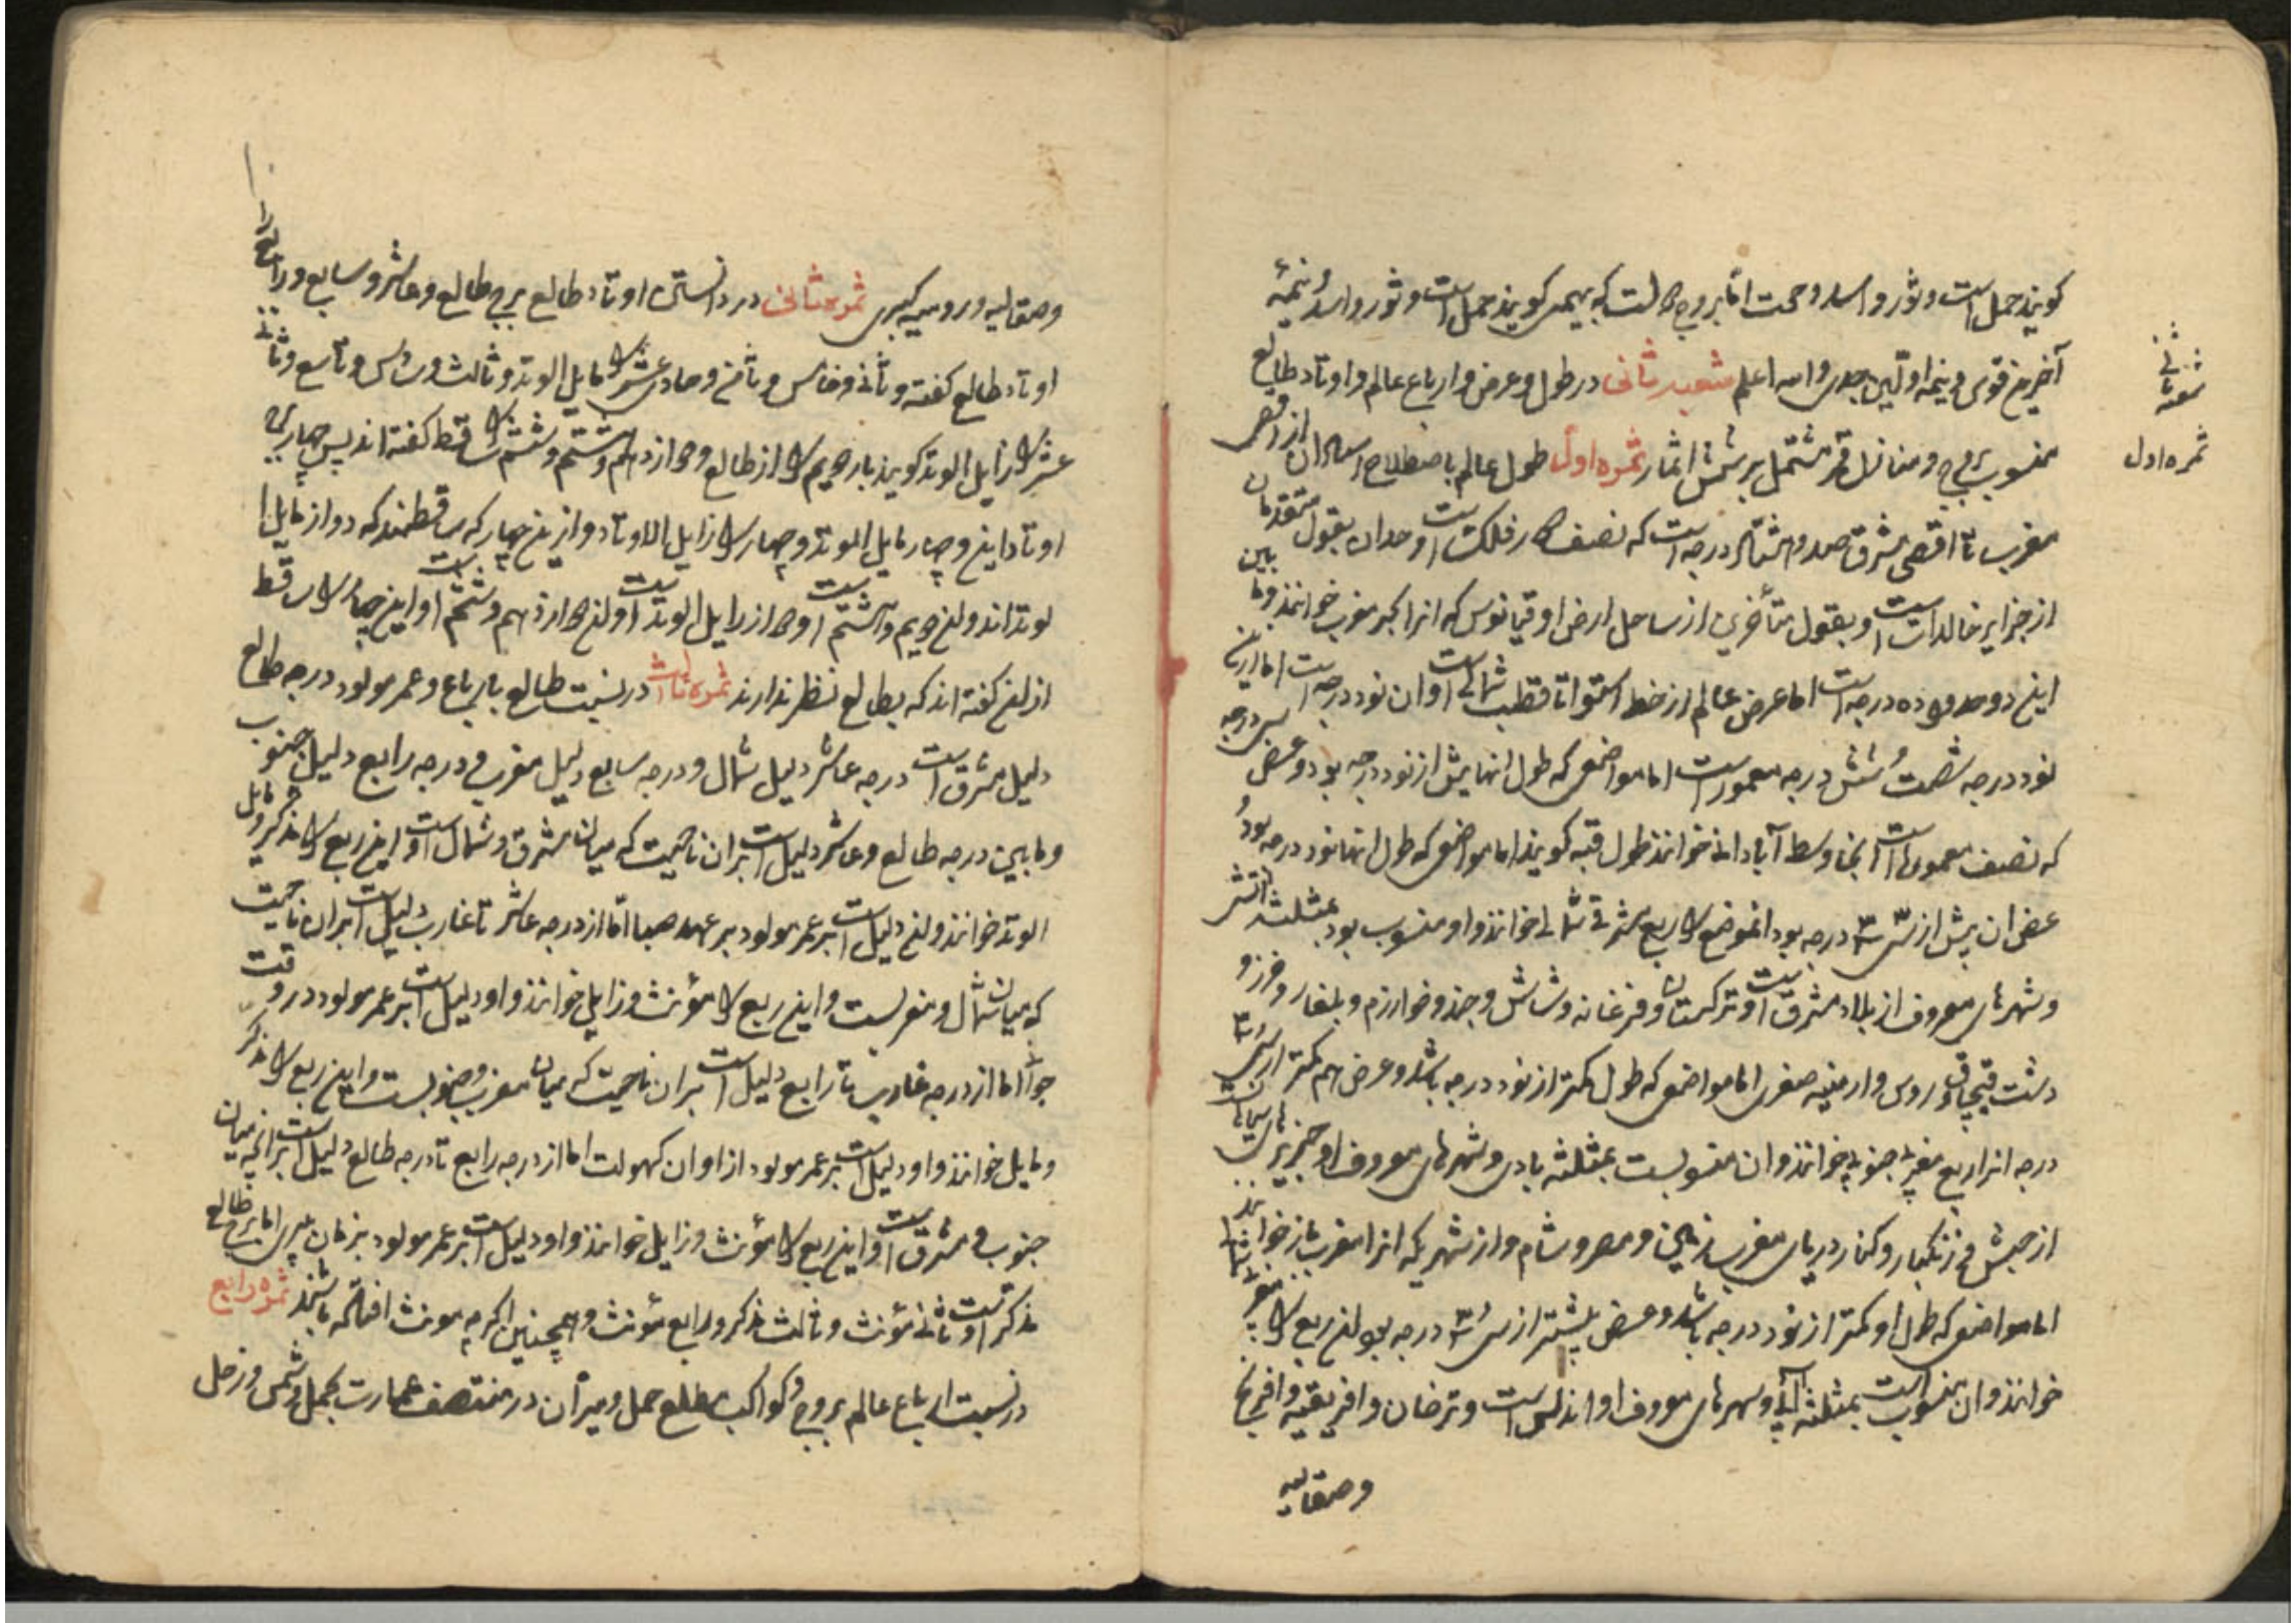 کویند حمل است و ثور و اسد و حمت اما بروج که بهیمی کویند حمل است و ثور و اسد و نیمهٔ
آخرین قوس و نیمه اولین جدی و الله اعلم شعبه ثانی در طول و عرض و ارباع عالم و اوتاد طالع
منسوب بروج و منازل قمر مشتمل بر شش اثمار ثمره اول طول عالم باصطلاح از اقصی
مغرب تا اقصی مشرق صد و هشتاد درجه است که نصف دور فلک است بقول متقدمان
از جزایر خالدات است و بقول متأخرین از ساحل ارض اوقیانوس که انرا بحر مغرب خوانند و ما بین
این دو حد ده درجه است اما عرض عالم از خط استوا تا قطب شمالی است و ان نود درجه است اما ازین
نود درجه شصت و شش درجه معمور است اما مواضعی که طول انها بیش از نود درجه بود و عرض سی درجه
که نصف معمور است انجا وسط آبادانی خوانند طول قبه کویند اما مواضعی که طول انها نود درجه بود
عرض ان بیش از سی ۳۰ درجه بود انموضع را ربع شرقی شمالی خوانند و او منسوب بود بمثلثه آتش
و شهرهای معروف از بلاد مشرق است و ترکستان و فرغانه و شاش و جند و خوارزم و بلغار و خزر و
دشت قبچاق و روس و ارمنیه صغری اما مواضعی که طول کمتر از نود درجه باشد و عرض هم کمتر از سی ۳۰
درجه انرا ربع مغربی جنوبی خوانند و ان منسوبست بمثلثه بادی و شهرهای معروف او
از حبش و زنگبار و کنار دریای مغرب و مصر و شام و از شهر یکه انرا مغرب خوانند
اما مواضعی که طول او کمتر از نود درجه باشد و عرض بیشتر از سی ۳۰ درجه بود این ربع را مغربی شمالی
خوانند و ان منسوب است بمثلثه آبی و شهرهای معروف او اندلس است و ترخان و افریقیه و افرنج
و صقالیه
شعبه ثانی
ثمره اول
و صقالیه و رومیه کبری ثمره ثانی در دانستن اوتاد طالع برج طالع و عاشر و سابع و رابع را
اوتاد طالع کفته و ثانی و خامس و ثامن و حادی عشر را مایل الوتد و ثالث و سادس و تاسع و ثانی
عشر را زایل الوتد کویند باز دویم را از طالع و دوازدهم و هشتم و ششم را ساقط کفته اند پس چهار برج
اوتاد این و چهار مایل الوتد و چهار را زایل الاوتاد و ازین چهار که ساقطند که دو از مایل ا
لوتد اند و ان دویم و هشتم است و دو از زایل الوتد است و ان دوازدهم و ششم است و این چهار را ساقط
از ان کفته اند که بطالع نظر ندارند ثمره ثالث در نسبت طالع بارباع و عمر مولود درجه طالع
دلیل مشرق است درجه عاشر دلیل شمال و درجه سابع دلیل مغرب و درجه رابع دلیل جنوب
و مابین درجه طالع و عاشر دلیل است بران ناحیت که میان مشرق و شمال است و این ربع را مذکر و مایل
الوتد خوانند و ان دلیل است بر عمر مولود بر عهد صبا اما از درجه عاشر تا غارب دلیل است بران ناحیت
که میان شمال و مغربست و این ربع را مؤنث و زایل خوانند و او دلیل است بر عمر مولود در وقت
جوانی اما از درجه غارب تا رابع دلیل است بران ناحیت که میان مغرب و جنوبست و این ربع را مذکر
و مایل خوانند و او دلیل است بر عمر مولود از اوان کهولت اما از درجه رابع تا درجه طالع دلیل است بر انچه میان
جنوب و مشرق است و این ربع را مؤنث و زایل خوانند و او دلیل است بر عمر مولود بزمان پیری اما برج طالع
مذکر است و ثانی مؤنث و ثالث مذکر و رابع مؤنث و همچنین اکرچه مونث افتاده باشند ثمره رابع
در نسبت ارباع عالم بروج و کواکب مطلع حمل و میزان در منتصف عمارت بحمل و شمس و زحل